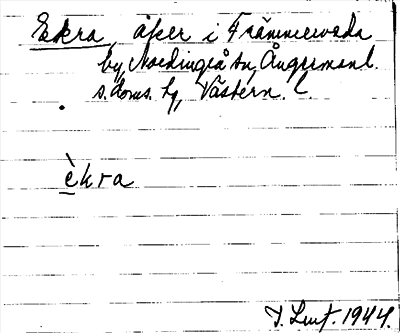 Ekra, åker i Främmerveda
by, Nordingrå sn, Ångermanl.
s. doms. hg, Västern. l.
èkra
J. Lmf. 1944.